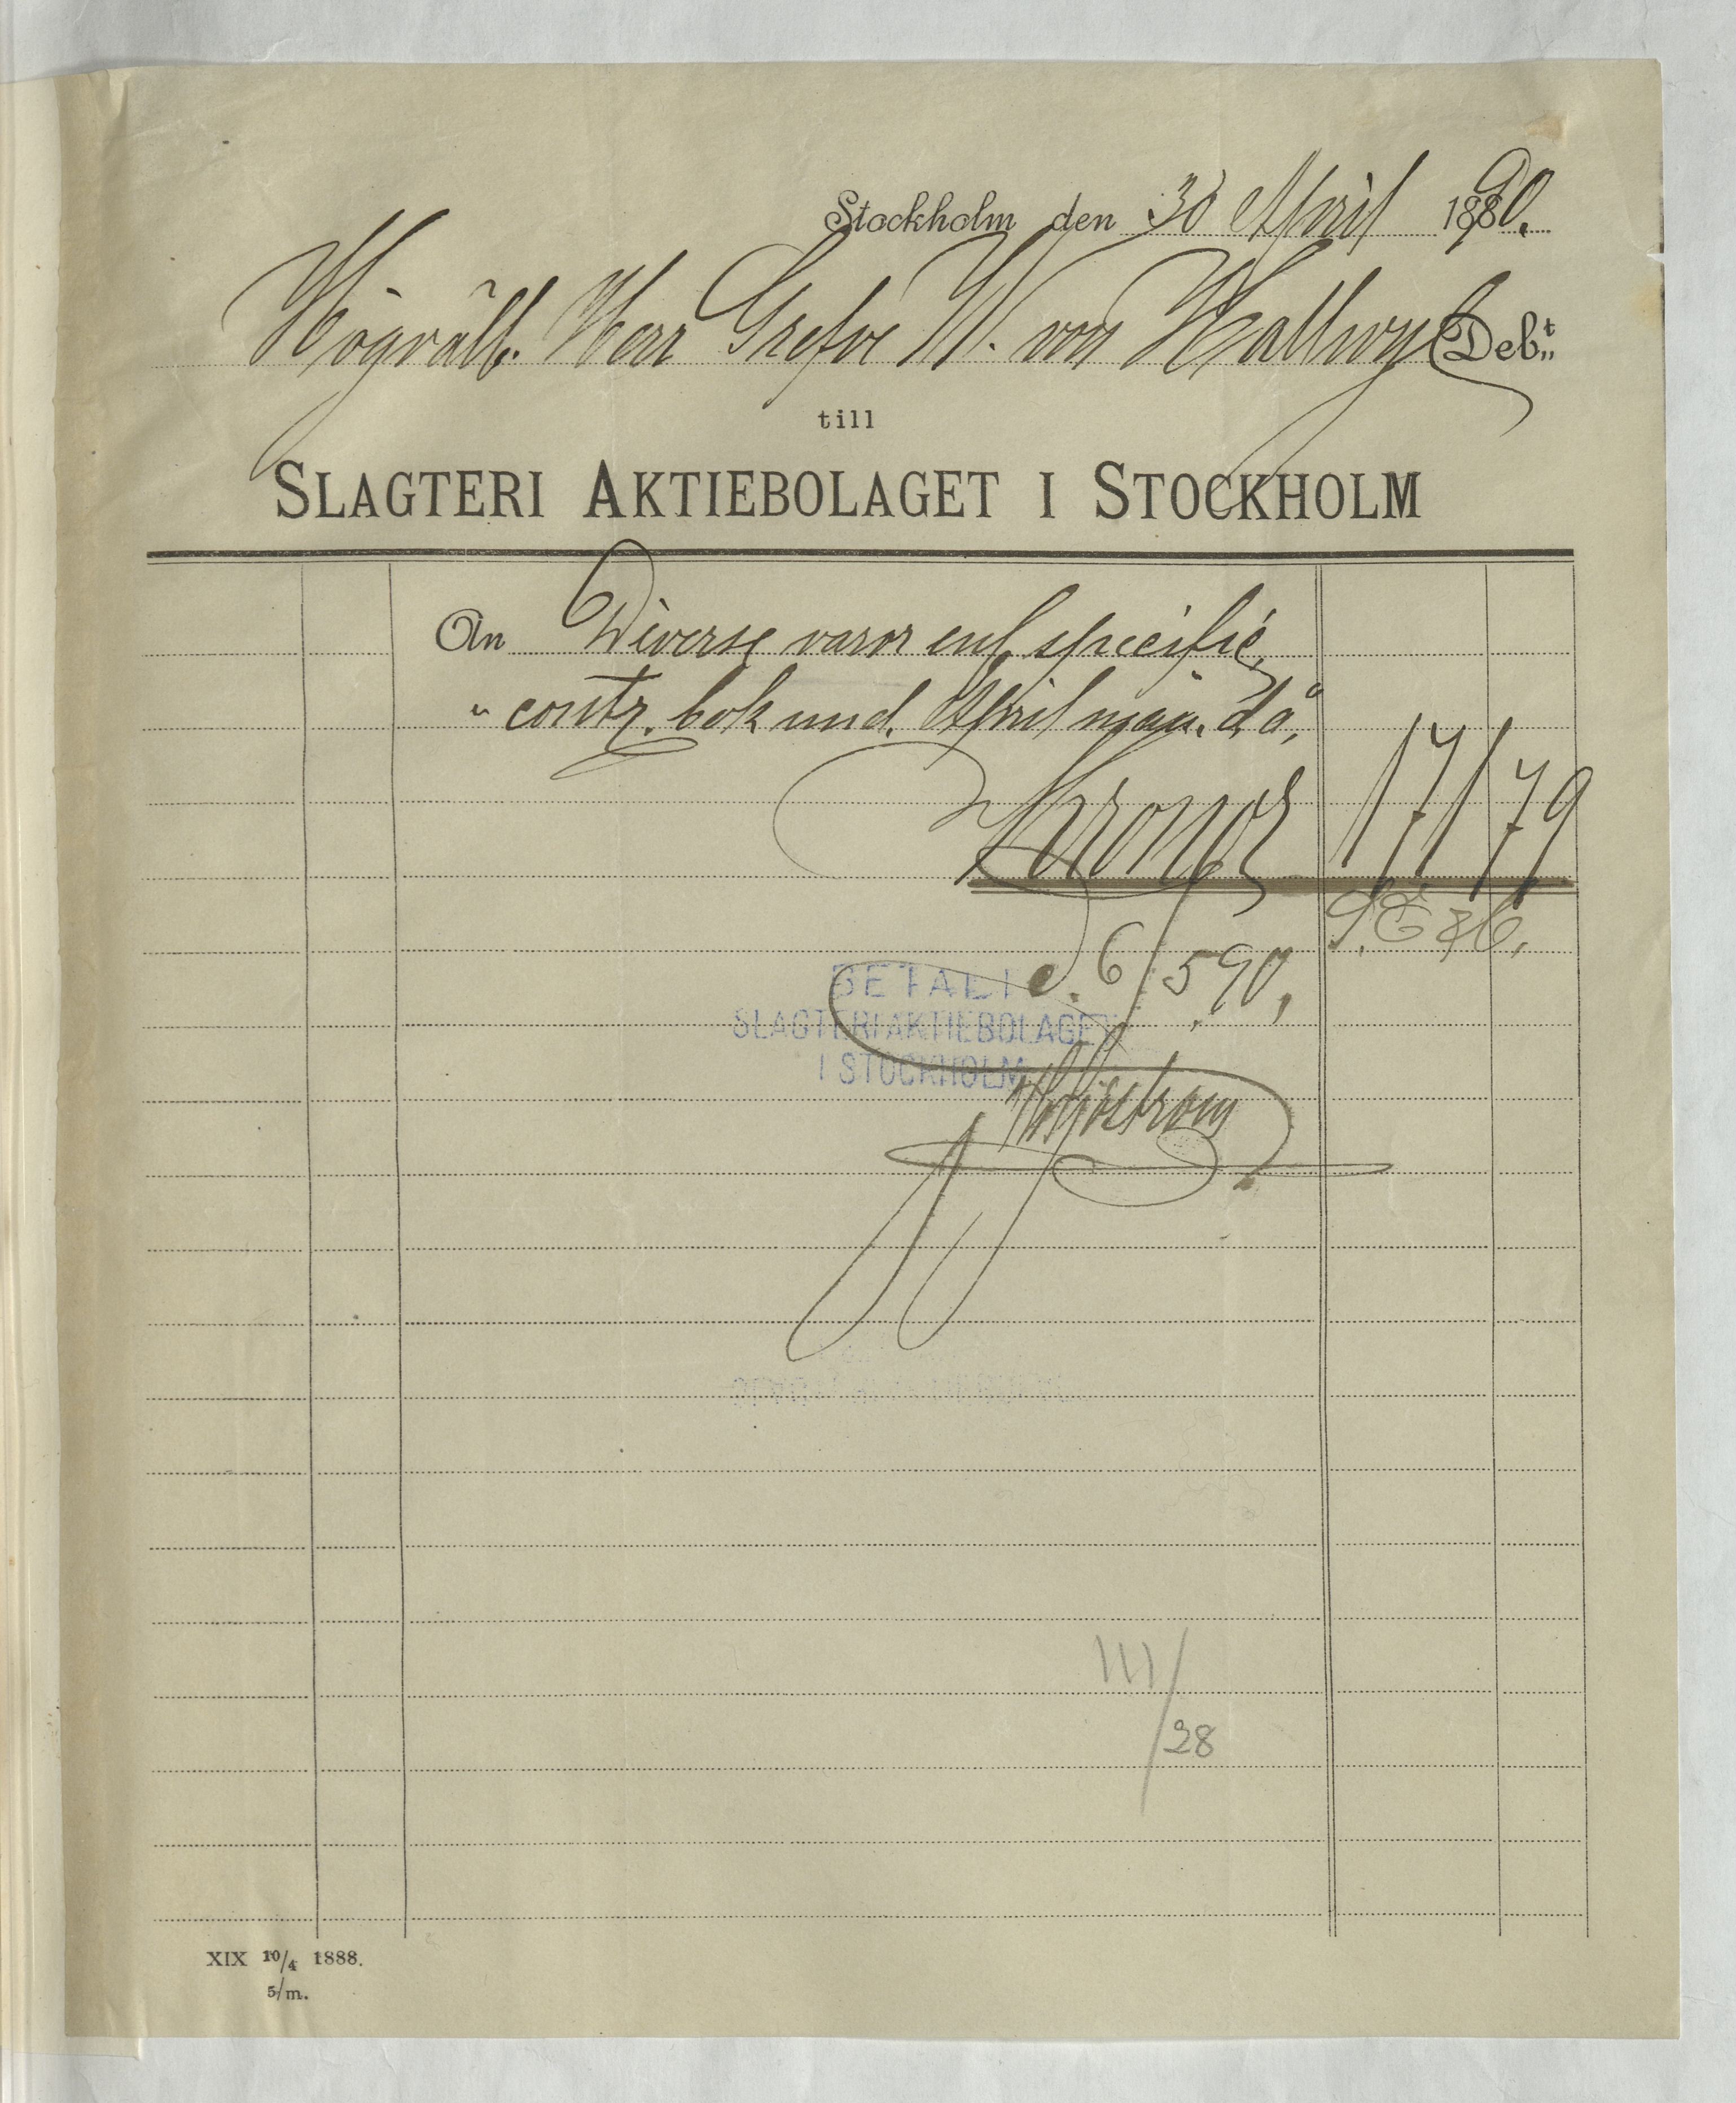 Stockholm den 30 April 1890.
Högvälb. Herr Grefve W. von Hallwyl Deb:t
till
SLAGTERI AKTIEBOLAGET I STOCKHOLM
An Diverse varor enl specific,
" contr. bok und. April mån. d, å,
Kronor 171 79
S. E & O.
d. 6/5 90,
BETALT
SLAGTERIAKTIEBOLAGET
I STOCKHOLM
III/28
XIX 10/4 1888.
5/m.